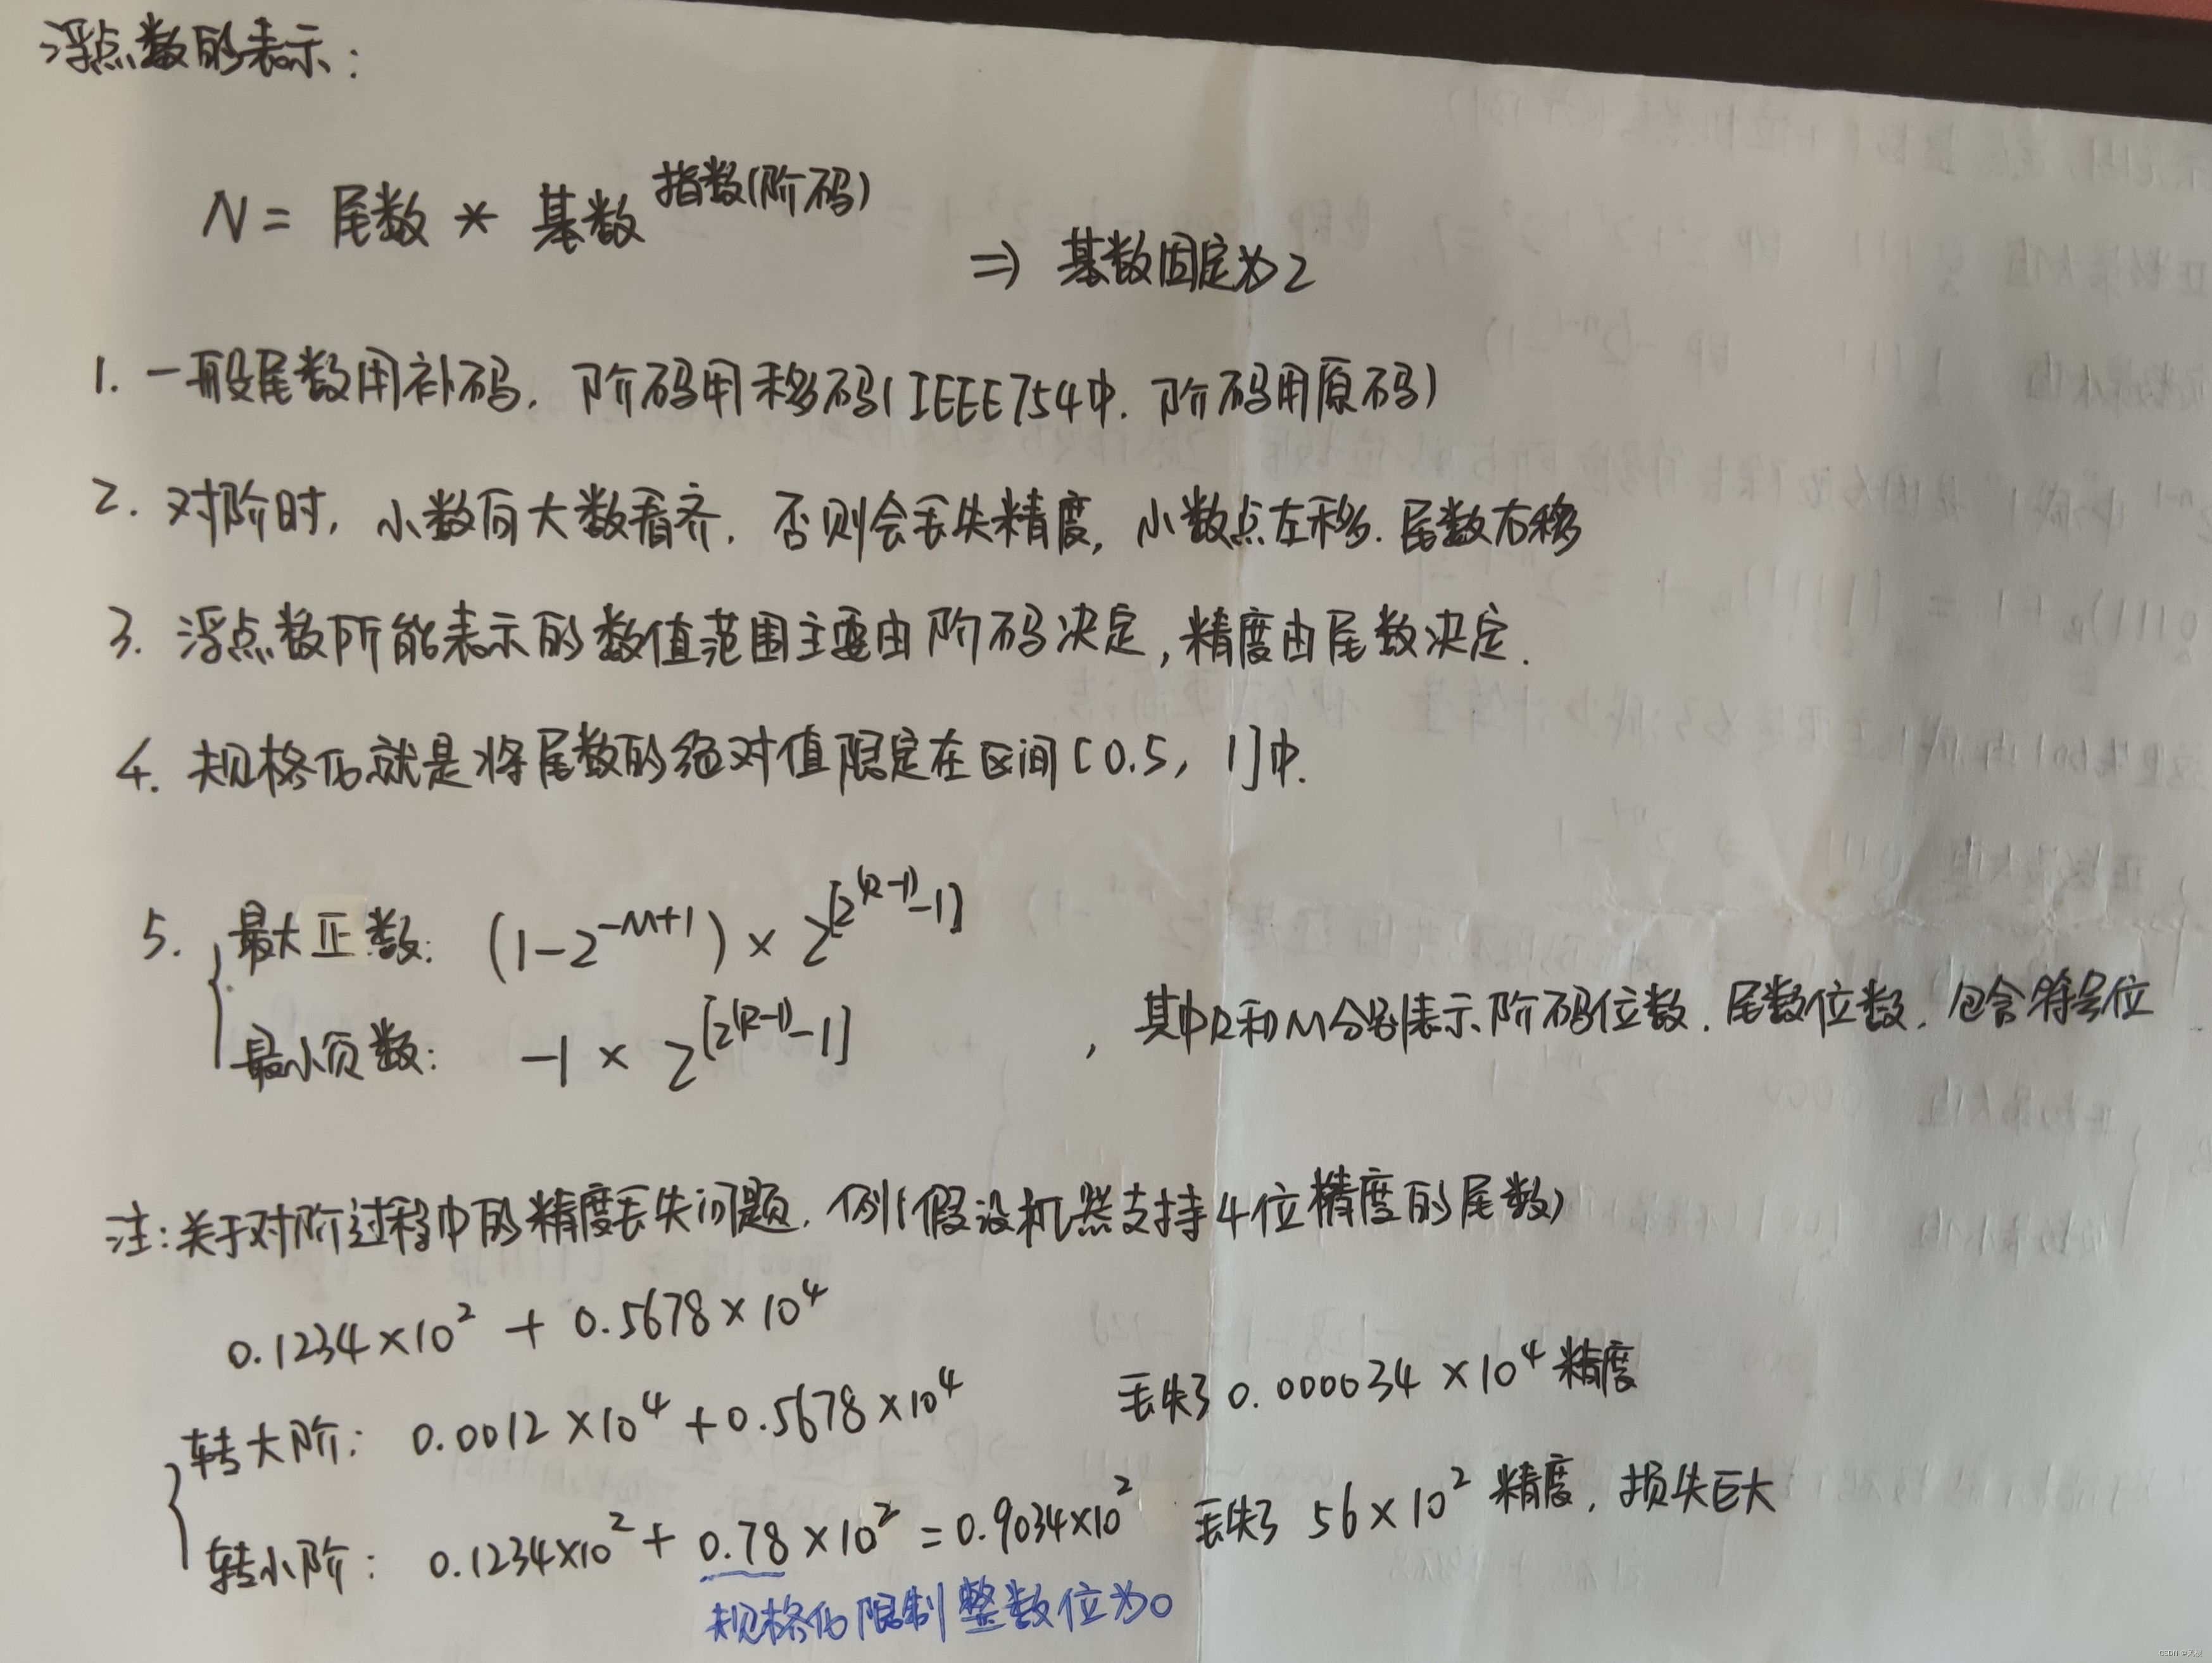 浮点数的表示:
N = 尾数 * 基数^指数(阶码)
⇒ 基数固定为2
1. 一般尾数用补码, 阶码用移码(IEEE754中. 阶码用原码)
2. 对阶时, 小数向大数看齐, 否则会丢失精度, 小数点左移. 尾数右移
3. 浮点数所能表示的数值范围主要由阶码决定, 精度由尾数决定.
4. 规格化就是将尾数的绝对值限定在区间[0.5, 1]中.
5. { 最大正数: (1-2^{-M+1}) × 2^{[2^{(R-1)}-1]}
最小负数: -1 × 2^{[2^{(R-1)}-1]} , 其中R和M分别表示阶码位数. 尾数位数, 包含符号位
注: 关于对阶过程中的精度丢失问题. 例(假设机器支持4位精度的尾数)
0.1234×10² + 0.5678×10⁴
{ 转大阶: 0.0012×10⁴ + 0.5678×10⁴ 丢失了 0.000034×10⁴ 精度
转小阶: 0.1234×10² + 0.78×10² = 0.9034×10² 丢失了 56×10² 精度, 损失巨大
规格化限制整数位为0